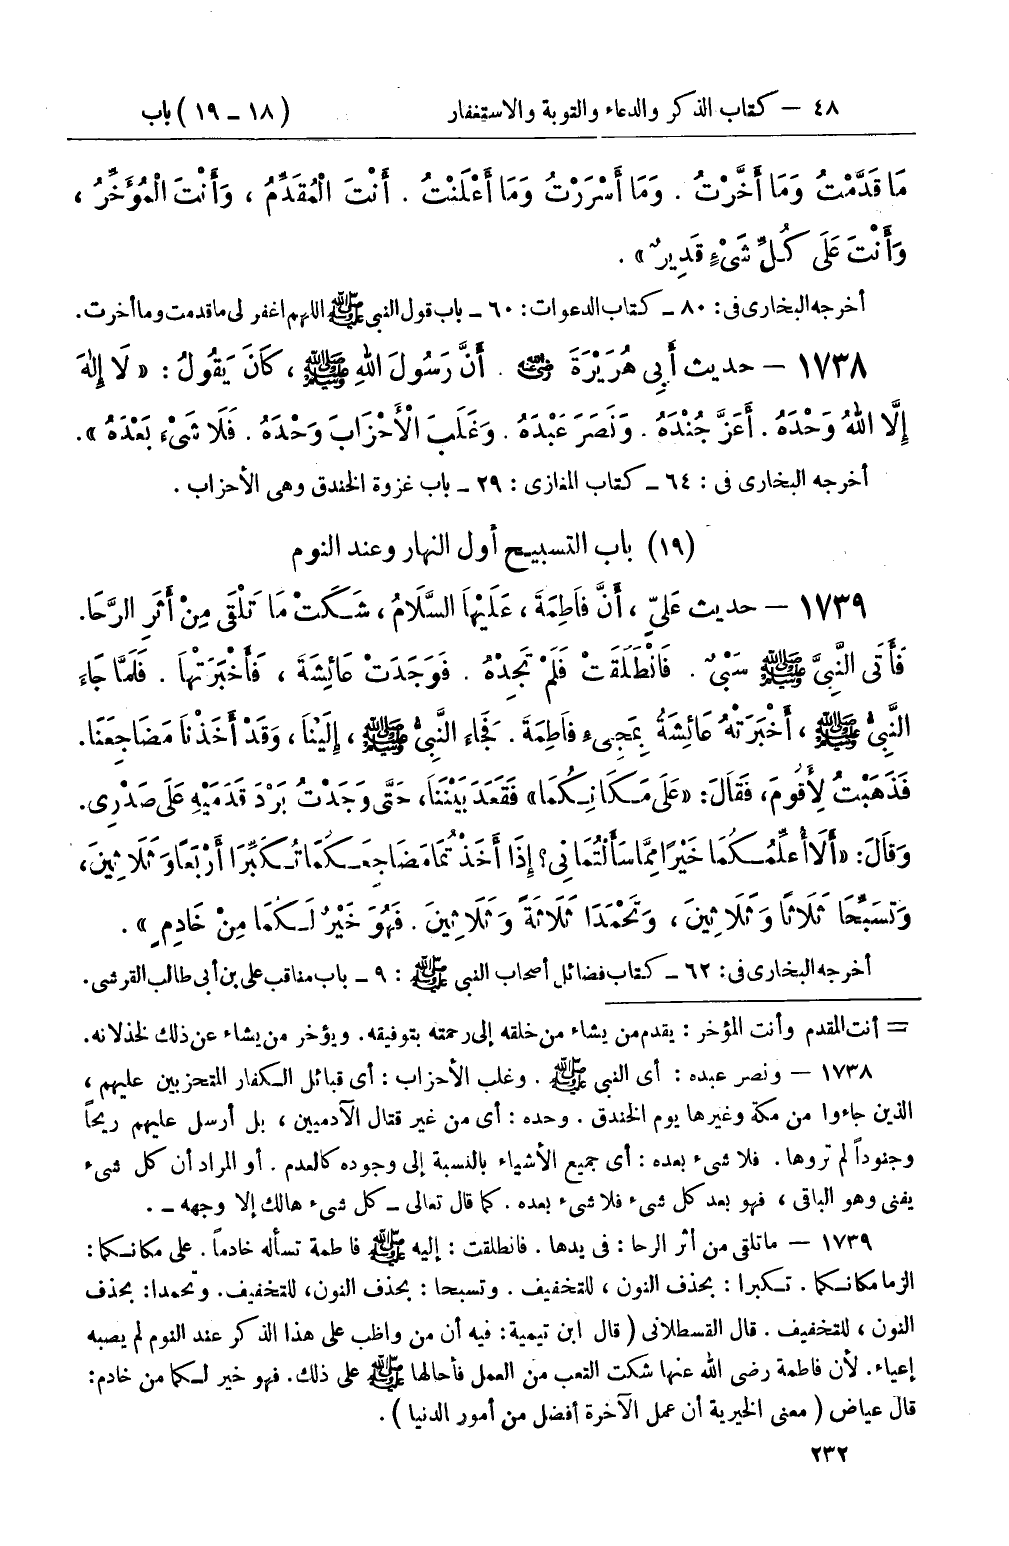 ٤٨ – كتاب الذكر والدعاء والتوبة والاستغفار (١٨ – ١٩) باب
مَا قَدَّمْتُ وَمَا أَخَّرْتُ . وَمَا أَسْرَرْتُ وَمَا أَعْلَنْتُ . أَنْتَ الْمُقَدِّمُ ، وَأَنْتَ الْمُؤَخِّرُ ،
وَأَنْتَ عَلَى كُلِّ شَيْءٍ قَدِيرٌ » .
أخرجه البخارى فى : ٨٠ – كتاب الدعوات : ٦٠ – باب قول النبى ﷺ اللهم اغفر لى ما قدمت وما أخرت .
١٧٣٨ – حديث أَبِي هُرَيْرَةَ رضي الله عنه . أَنَّ رَسُولَ اللهِ ﷺ ، كَانَ يَقُولُ : « لَا إِلٰهَ
إِلَّا اللهُ وَحْدَهُ . أَعَزَّ جُنْدَهُ . وَنَصَرَ عَبْدَهُ . وَغَلَبَ الْأَحْزَابَ وَحْدَهُ . فَلَا شَيْءَ بَعْدَهُ » .
أخرجه البخارى فى : ٦٤ – كتاب المغازى : ٢٩ – باب غزوة الخندق وهى الأحزاب .
(١٩) باب التسبيح أول النهار وعند النوم
١٧٣٩ – حديث عَلِيٍّ ، أَنَّ فَاطِمَةَ ، عَلَيْهَا السَّلَامُ ، شَكَتْ مَا تَلْقَى مِنْ أَثَرِ الرَّحَا .
فَأَتَى النَّبِيَّ ﷺ سَبْيٌ . فَانْطَلَقَتْ فَلَمْ تَجِدْهُ . فَوَجَدَتْ عَائِشَةَ ، فَأَخْبَرَتْهَا . فَلَمَّا جَاءَ
النَّبِيُّ ﷺ ، أَخْبَرَتْهُ عَائِشَةُ بِمَجِيءِ فَاطِمَةَ . فَجَاءَ النَّبِيُّ ﷺ ، إِلَيْنَا ، وَقَدْ أَخَذْنَا مَضَاجِعَنَا .
فَذَهَبْتُ لِأَقُومَ، فَقَالَ: «عَلَى مَكَانِكُمَا» فَقَعَدَ بَيْنَنَا، حَتَّى وَجَدْتُ بَرْدَ قَدَمَيْهِ عَلَى صَدْرِى.
وَقَالَ: «أَلَا أُعَلِّمُكُمَا خَيْرًا مِمَّا سَأَلْتُمَانِي؟ إِذَا أَخَذْتُمَا مَضَاجِعَكُمَا تُكَبِّرَا أَرْبَعًا وَثَلَاثِينَ،
وَتُسَبِّحَا ثَلَاثًا وَثَلَاثِينَ ، وَتَحْمَدَا ثَلَاثَةً وَثَلَاثِينَ . فَهُوَ خَيْرٌ لَكُمَا مِنْ خَادِمٍ » .
أخرجه البخارى فى: ٦٢ – كتاب فضائل أصحاب النبى ﷺ : ٩ – باب مناقب على بن أبى طالب القرشى.
= أنت المقدم وأنت المؤخر : يقدم من يشاء من خلقه إلى رحمته بتوفيقه. ويؤخر من يشاء عن ذلك لخذلانه.
١٧٣٨ – ونصر عبده : أى النبى ﷺ . وغلب الأحزاب : أى قبائل الكفار المتحزبين عليهم ،
الذين جاءوا من مكة وغيرها يوم الخندق . وحده : أى من غير قتال الآدميين ، بل أرسل عليهم ريحاً
وجنوداً لم تروها . فلا شىء بعده : أى جميع الأشياء بالنسبة إلى وجوده كالعدم . أو المراد أن كل شىء
يفنى وهو الباقى ، فهو بعد كل شىء فلا شىء بعده . كما قال تعالى – كل شىء هالك إلا وجهه – .
١٧٣٩ – ما تلقى من أثر الرحا : فى يدها . فانطلقت : إليه ﷺ فاطمة تسأله خادماً . على مكانكما :
الزما مكانكما . تكبرا : بحذف النون ، للتخفيف . وتسبحا : بحذف النون، للتخفيف. وتحمدا: بحذف
النون ، للتخفيف . قال القسطلانى ( قال ابن تيمية : فيه أن من واظب على هذا الذكر عند النوم لم يصبه
إعياء . لأن فاطمة رضى الله عنها شكت التعب من العمل فأحالها ﷺ على ذلك. فهو خير لكما من خادم :
قال عياض ( معنى الخيرية أن عمل الآخرة أفضل من أمور الدنيا ) .
٢٣٢